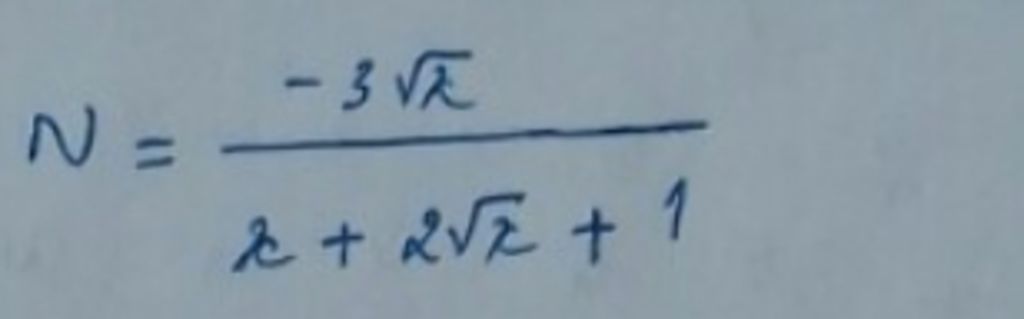 N = \frac{-3\sqrt{x}}{x + 2\sqrt{x} + 1}